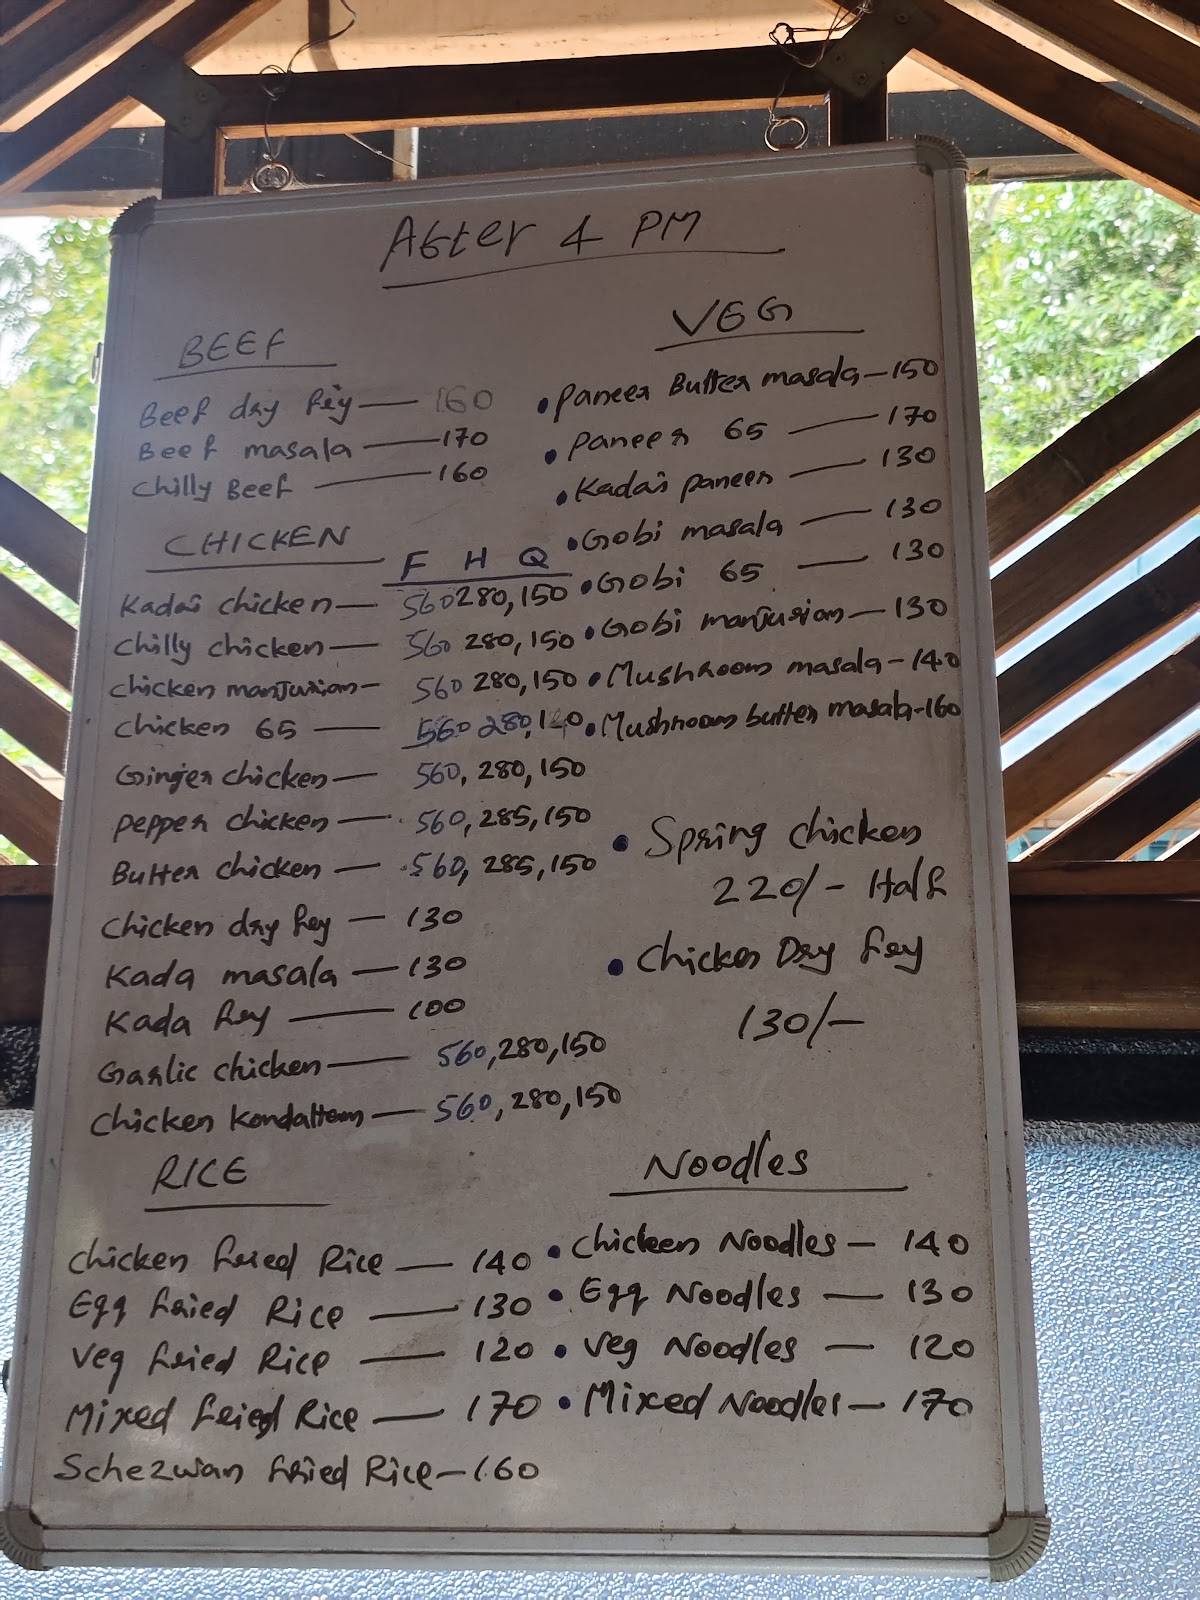 After 4 PM
BEEF
Beef dry fry — 160
Beef masala — 170
Chilly Beef — 160
CHICKEN
F H Q
Kadai chicken — 560 280, 150
Chilly chicken — 560 280, 150
Chicken manjurian — 560 280, 150
Chicken 65 — 560 280,
Ginger chicken — 560, 280, 150
Pepper chicken — 560, 285, 150
Butter chicken — 560, 285, 150
Chicken dry fry — 130
Kada masala — 130
Kada fry — 100
Garlic chicken — 560, 280, 150
Chicken Kondattam — 560, 280, 150
VEG
• Paneer Butter masala — 150
• Paneer 65 — 170
• Kadai paneer — 130
• Gobi masala — 130
• Gobi 65 — 130
• Gobi manjurian — 130
• Mushroom masala - 140
• Mushroom butter masala - 160
• Spring chicken
220/- Half
• Chicken Dry fry
130/-
RICE
Chicken fried Rice — 140
Egg fried Rice — 130
Veg fried Rice — 120
Mixed fried Rice — 170
Schezwan fried Rice — 160
NOODLES
• Chicken Noodles — 140
• Egg Noodles — 130
• Veg Noodles — 120
• Mixed Noodles — 170